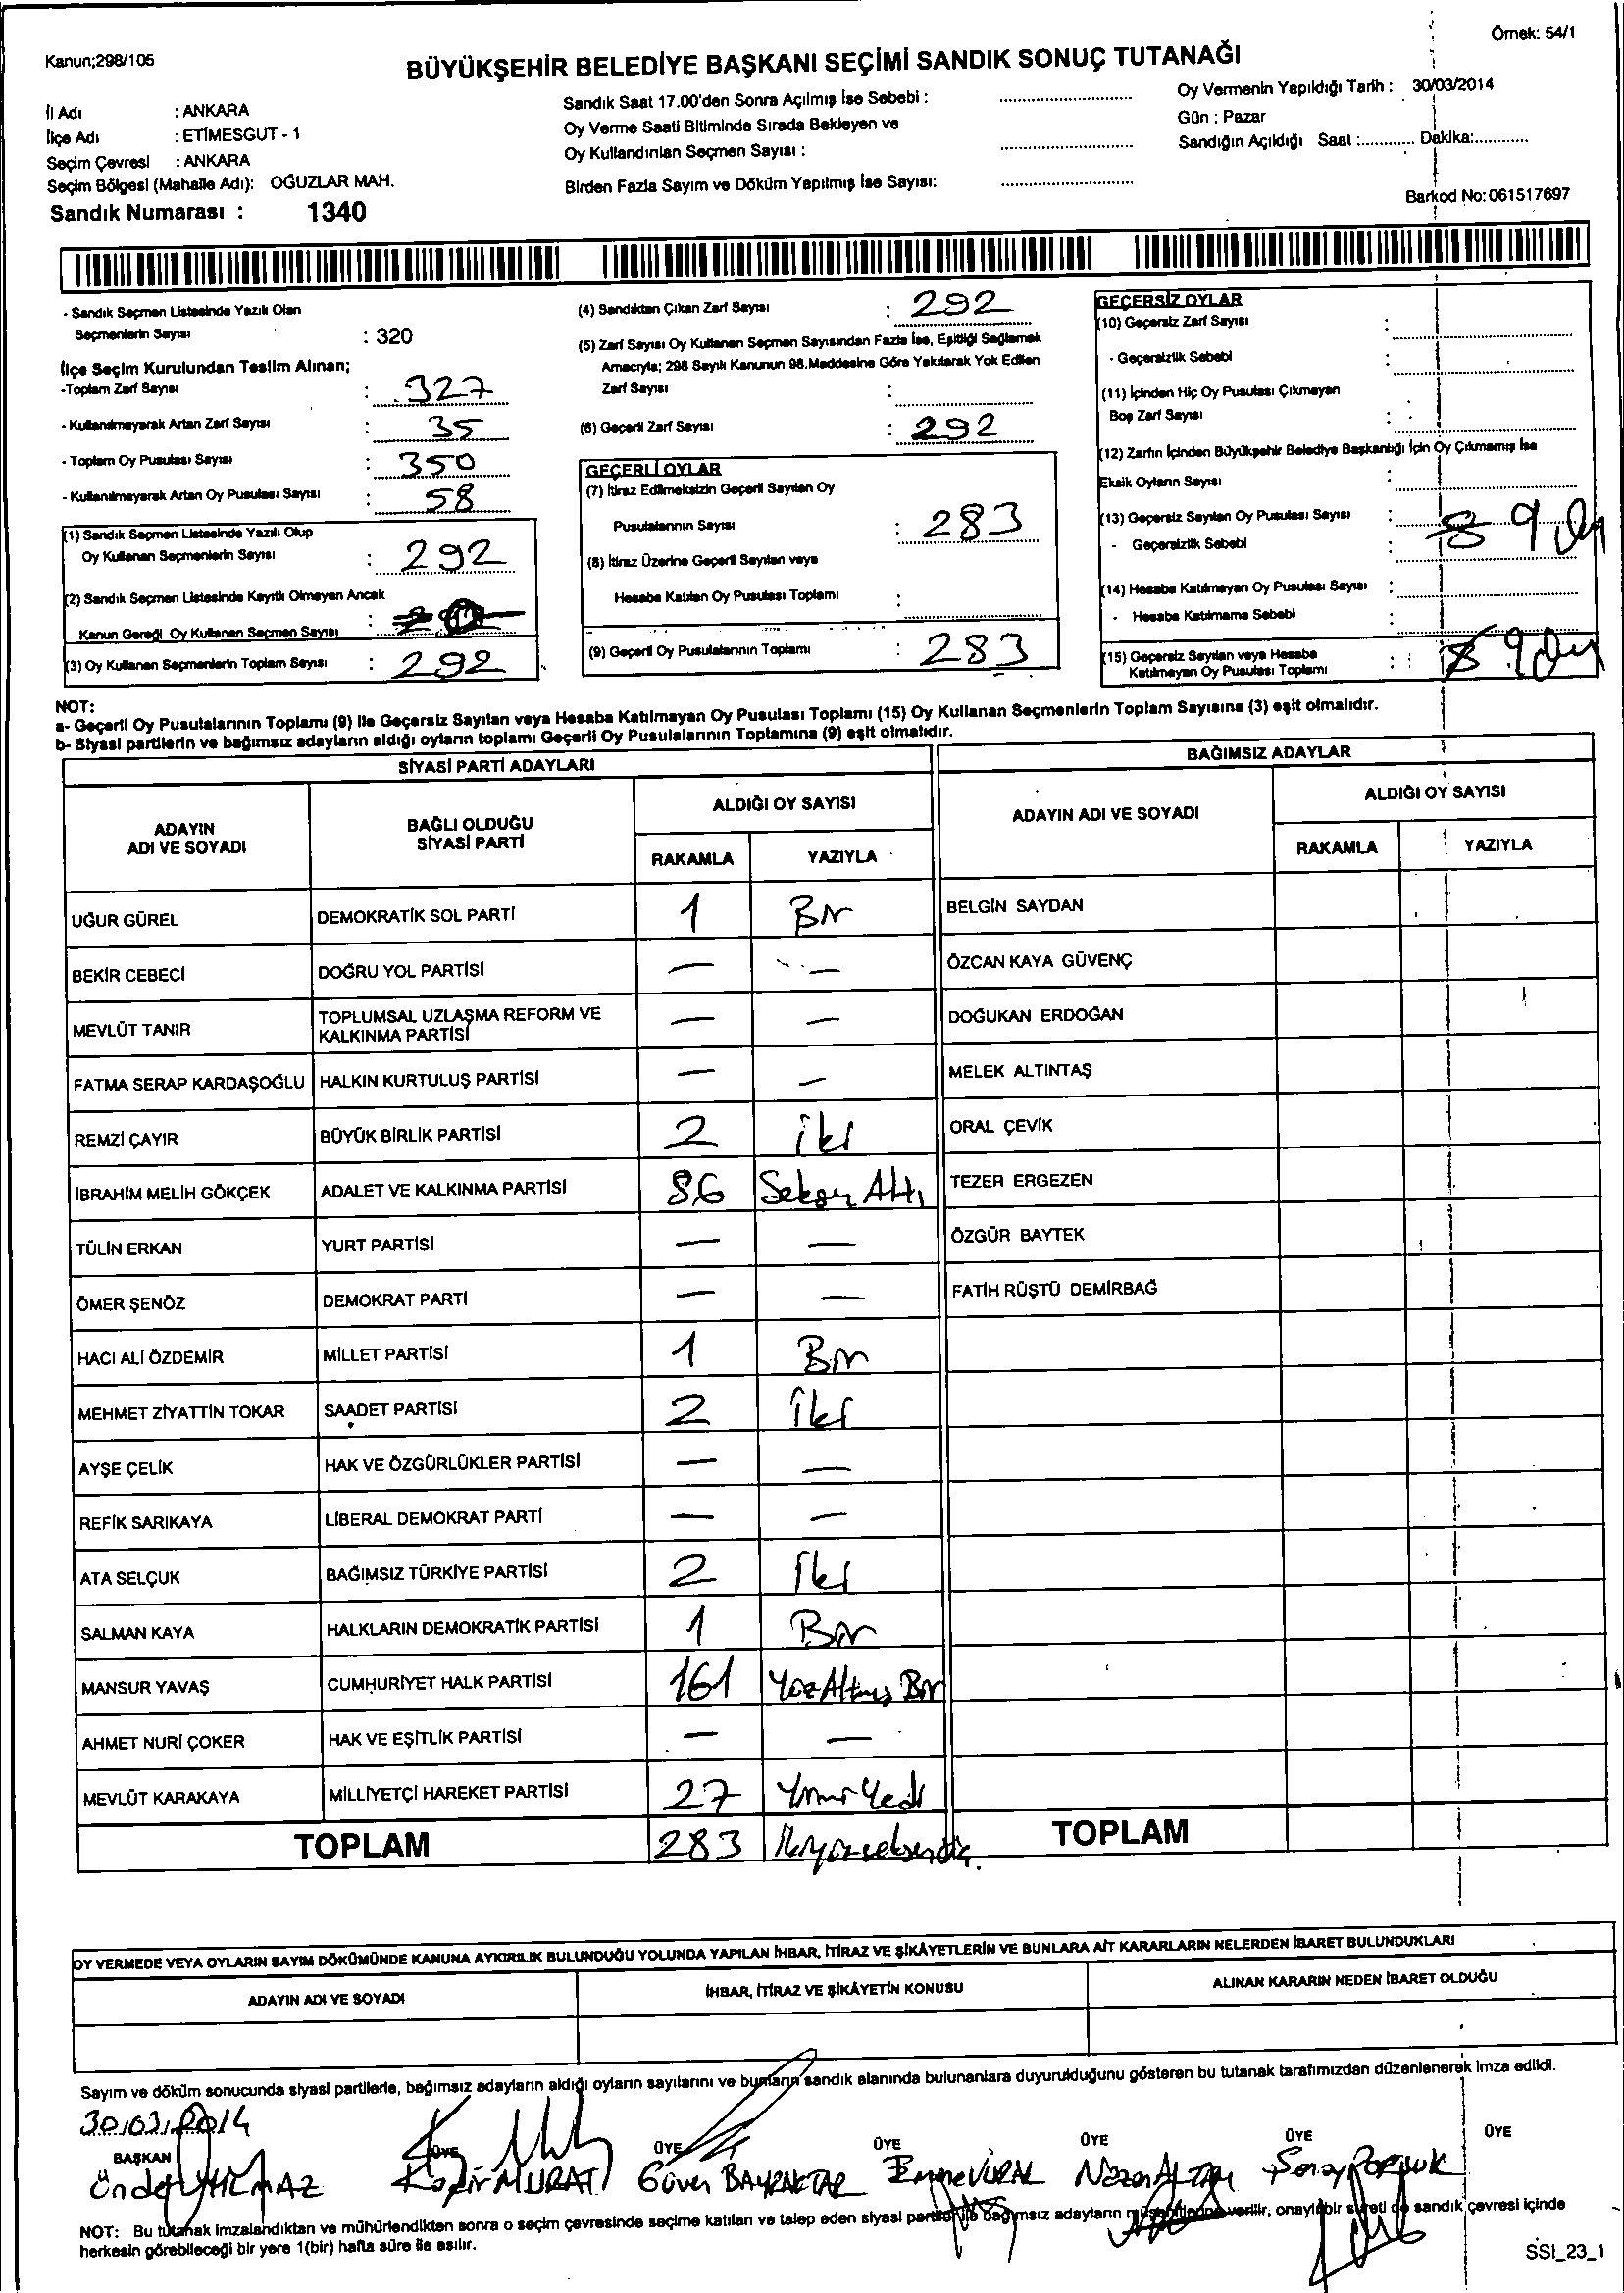 Örnek: 54/1
Kanun;298/105
BÜYÜKŞEHİR BELEDİYE BAŞKANI SEÇİMİ SANDIK SONUÇ TUTANAĞI
İl Adı : ANKARA
İlçe Adı : ETİMESGUT - 1
Seçim Çevresi : ANKARA
Seçim Bölgesi (Mahalle Adı): OĞUZLAR MAH.
Sandık Numarası : 1340
Sandık Saat 17.00'den Sonra Açılmış İse Sebebi :
Oy Verme Saati Bitiminde Sırada Bekleyen ve
Oy Kullandırılan Seçmen Sayısı :
Birden Fazla Sayım ve Döküm Yapılmış İse Sayısı:
Oy Vermenin Yapıldığı Tarih : 30/03/2014
Gün : Pazar
Sandığın Açıldığı Saat :............ Dakika:............
Barkod No:061517697
- Sandık Seçmen Listesinde Yazılı Olan
Seçmenlerin Sayısı : 320
İlçe Seçim Kurulundan Teslim Alınan;
-Toplam Zarf Sayısı : 327
- Kullanılmayarak Artan Zarf Sayısı : 35
- Toplam Oy Pusulası Sayısı : 350
- Kullanılmayarak Artan Oy Pusulası Sayısı : 58
(1) Sandık Seçmen Listesinde Yazılı Olup
Oy Kullanan Seçmenlerin Sayısı : 292
(2) Sandık Seçmen Listesinde Kayıtlı Olmayan Ancak
Kanun Gereği Oy Kullanan Seçmen Sayısı :
(3) Oy Kullanan Seçmenlerin Toplam Sayısı : 292
(4) Sandıktan Çıkan Zarf Sayısı : 292
(5) Zarf Sayısı Oy Kullanan Seçmen Sayısından Fazla İse, Eşitliği Sağlamak
Amacıyla; 298 Sayılı Kanunun 98.Maddesine Göre Yakılarak Yok Edilen
Zarf Sayısı :
(6) Geçerli Zarf Sayısı : 292
GEÇERLİ OYLAR
(7) İtiraz Edilmeksizin Geçerli Sayılan Oy
Pusulalarının Sayısı : 283
(8) İtiraz Üzerine Geçerli Sayılan veya
Hesaba Katılan Oy Pusulası Toplamı :
(9) Geçerli Oy Pusulalarının Toplamı : 283
GEÇERSİZ OYLAR
(10) Geçersiz Zarf Sayısı :
- Geçersizlik Sebebi :
(11) İçinden Hiç Oy Pusulası Çıkmayan
Boş Zarf Sayısı :
(12) Zarfın İçinden Büyükşehir Belediye Başkanlığı İçin Oy Çıkmamış İse
Eksik Oyların Sayısı :
(13) Geçersiz Sayılan Oy Pusulası Sayısı : 8 9
- Geçersizlik Sebebi :
(14) Hesaba Katılmayan Oy Pusulası Sayısı :
- Hesaba Katılmama Sebebi :
(15) Geçersiz Sayılan veya Hesaba
Katılmayan Oy Pusulası Toplamı : 8 9
NOT:
a- Geçerli Oy Pusulalarının Toplamı (9) ile Geçersiz Sayılan veya Hesaba Katılmayan Oy Pusulası Toplamı (15) Oy Kullanan Seçmenlerin Toplam Sayısına (3) eşit olmalıdır.
b- Siyasi partilerin ve bağımsız adayların aldığı oyların toplamı Geçerli Oy Pusulalarının Toplamına (9) eşit olmalıdır.
SİYASİ PARTİ ADAYLARI
ADAYIN ADI VE SOYADI BAĞLI OLDUĞU SİYASİ PARTİ ALDIĞI OY SAYISI
RAKAMLA YAZIYLA
UĞUR GÜREL DEMOKRATİK SOL PARTİ 1 Bir
BEKİR CEBECİ DOĞRU YOL PARTİSİ — —
MEVLÜT TANIR TOPLUMSAL UZLAŞMA REFORM VE KALKINMA PARTİSİ — —
FATMA SERAP KARDAŞOĞLU HALKIN KURTULUŞ PARTİSİ — —
REMZİ ÇAYIR BÜYÜK BİRLİK PARTİSİ 2 İki
İBRAHİM MELİH GÖKÇEK ADALET VE KALKINMA PARTİSİ 86 Seksen Altı
TÜLİN ERKAN YURT PARTİSİ — —
ÖMER ŞENÖZ DEMOKRAT PARTİ — —
HACI ALİ ÖZDEMİR MİLLET PARTİSİ 1 Bir
MEHMET ZİYATTİN TOKAR SAADET PARTİSİ 2 İki
AYŞE ÇELİK HAK VE ÖZGÜRLÜKLER PARTİSİ — —
REFİK SARIKAYA LİBERAL DEMOKRAT PARTİ — —
ATA SELÇUK BAĞIMSIZ TÜRKİYE PARTİSİ 2 İki
SALMAN KAYA HALKLARIN DEMOKRATİK PARTİSİ 1 Bir
MANSUR YAVAŞ CUMHURİYET HALK PARTİSİ 161 Yüz Altmış Bir
AHMET NURİ ÇOKER HAK VE EŞİTLİK PARTİSİ — —
MEVLÜT KARAKAYA MİLLİYETÇİ HAREKET PARTİSİ 27 Yirmi Yedi
TOPLAM 283 İkiyüzseksenüç
BAĞIMSIZ ADAYLAR
ADAYIN ADI VE SOYADI ALDIĞI OY SAYISI
RAKAMLA YAZIYLA
BELGİN SAYDAN
ÖZCAN KAYA GÜVENÇ
DOĞUKAN ERDOĞAN
MELEK ALTINTAŞ
ORAL ÇEVİK
TEZER ERGEZEN
ÖZGÜR BAYTEK
FATİH RÜŞTÜ DEMİRBAĞ
TOPLAM
OY VERMEDE VEYA OYLARIN SAYIM DÖKÜMÜNDE KANUNA AYKIRILIK BULUNDUĞU YOLUNDA YAPILAN İHBAR, İTİRAZ VE ŞİKÂYETLERİN VE BUNLARA AİT KARARLARIN NELERDEN İBARET BULUNDUKLARI
ADAYIN ADI VE SOYADI İHBAR, İTİRAZ VE ŞİKÂYETİN KONUSU ALINAN KARARIN NEDEN İBARET OLDUĞU
Sayım ve döküm sonucunda siyasi partilerle, bağımsız adayların aldığı oyların sayılarını ve bunların sandık alanında bulunanlara duyurulduğunu gösteren bu tutanak tarafımızdan düzenlenerek imza edildi.
30/03/2014
BAŞKAN ÜYE ÜYE ÜYE ÜYE ÜYE ÜYE
Önder YILMAZ MURAT Güven BAYRAKTAR Emine VURAL
NOT: Bu tutanak imzalandıktan ve mühürlendikten sonra o seçim çevresinde seçime katılan ve talep eden siyasi partiler ile bağımsız adayların müşahitlerine verilir, onaylı bir sureti de sandık çevresi içinde
herkesin görebileceği bir yere 1(bir) hafta süre ile asılır.
SSI_23_1